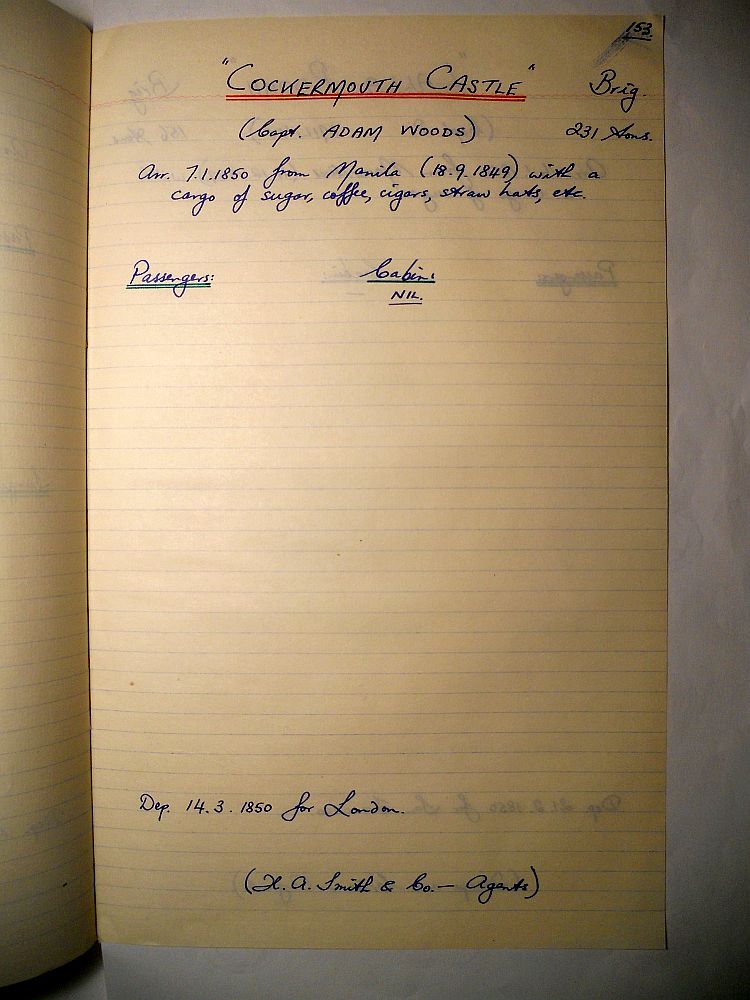 153.
"COCKERMOUTH CASTLE" Brig.
(Capt. ADAM WOODS) 231 tons.
Arr. 7.1.1850 from Manila (18.9.1849) with a
cargo of sugar, coffee, cigars, straw hats, etc.
Passengers: Cabin:
NIL.
Dep. 14.3.1850 for London.
(H.A. Smith & Co. — Agents)